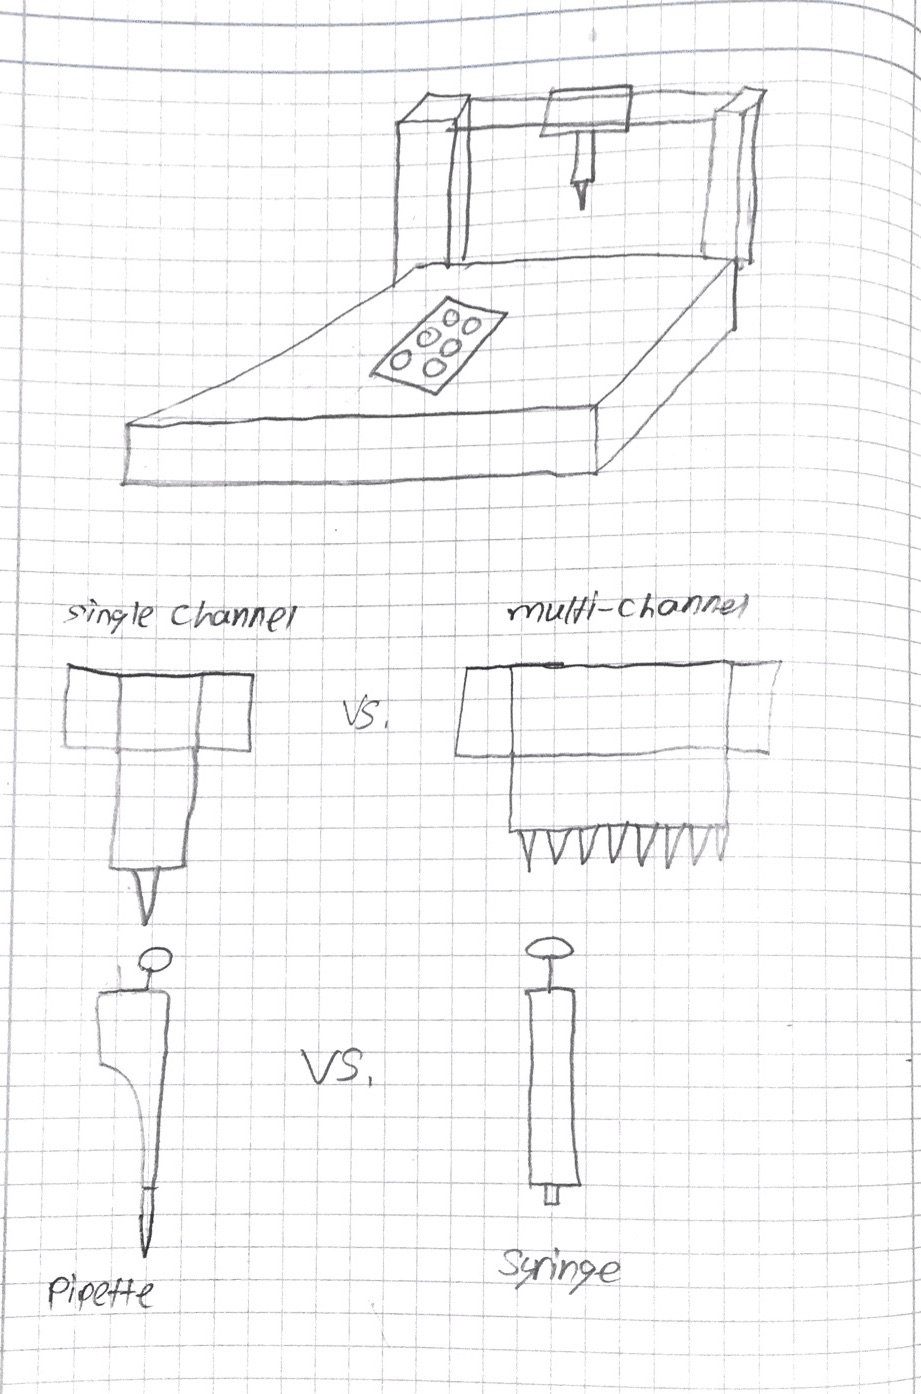 single channel
multi-channel
VS.
VS.
Pipette
Syringe